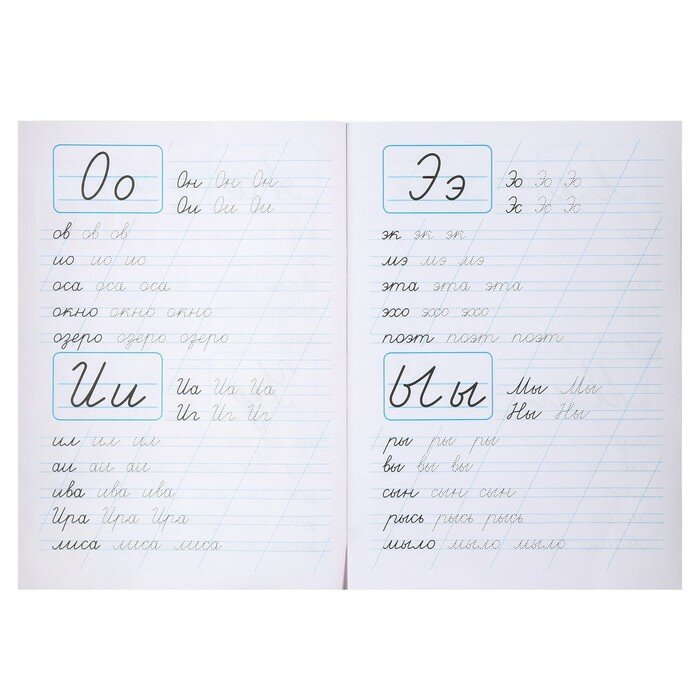 Оо
Он Он Он
Ои Ои Ои
ов ов ов
ио ио ио
оса оса оса
окно окно окно
озеро озеро озеро
Ии
Иа Иа Иа
Иг Иг Иг
ил ил ил
аи аи аи
ива ива ива
Ира Ира Ира
лиса лиса лиса
Ээ
Эо Эо Эо
Эс Эс Эс
эк эк эк
мэ мэ мэ
эта эта эта
эхо эхо эхо
поэт поэт поэт
Ыы
Мы Мы
Ны Ны
ры ры ры
вы вы вы
сын сын сын
рысь рысь рысь
мыло мыло мыло